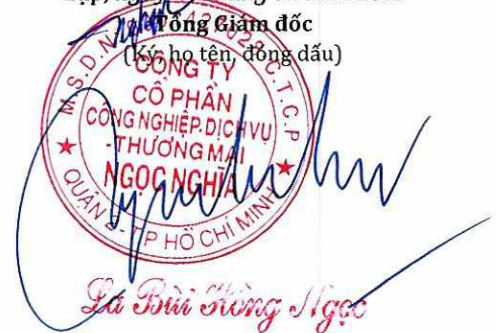 Tổng Giám đốc
(Ký, họ tên, đóng dấu)
CÔNG TY
CỔ PHẦN
CÔNG NGHIỆP.DỊCH VỤ
-THƯƠNG MẠI
NGỌC NGHĨA
M.S.D.N
C.T.C.P
TP HỒ CHÍ MINH
La Bùi Hồng Ngọc